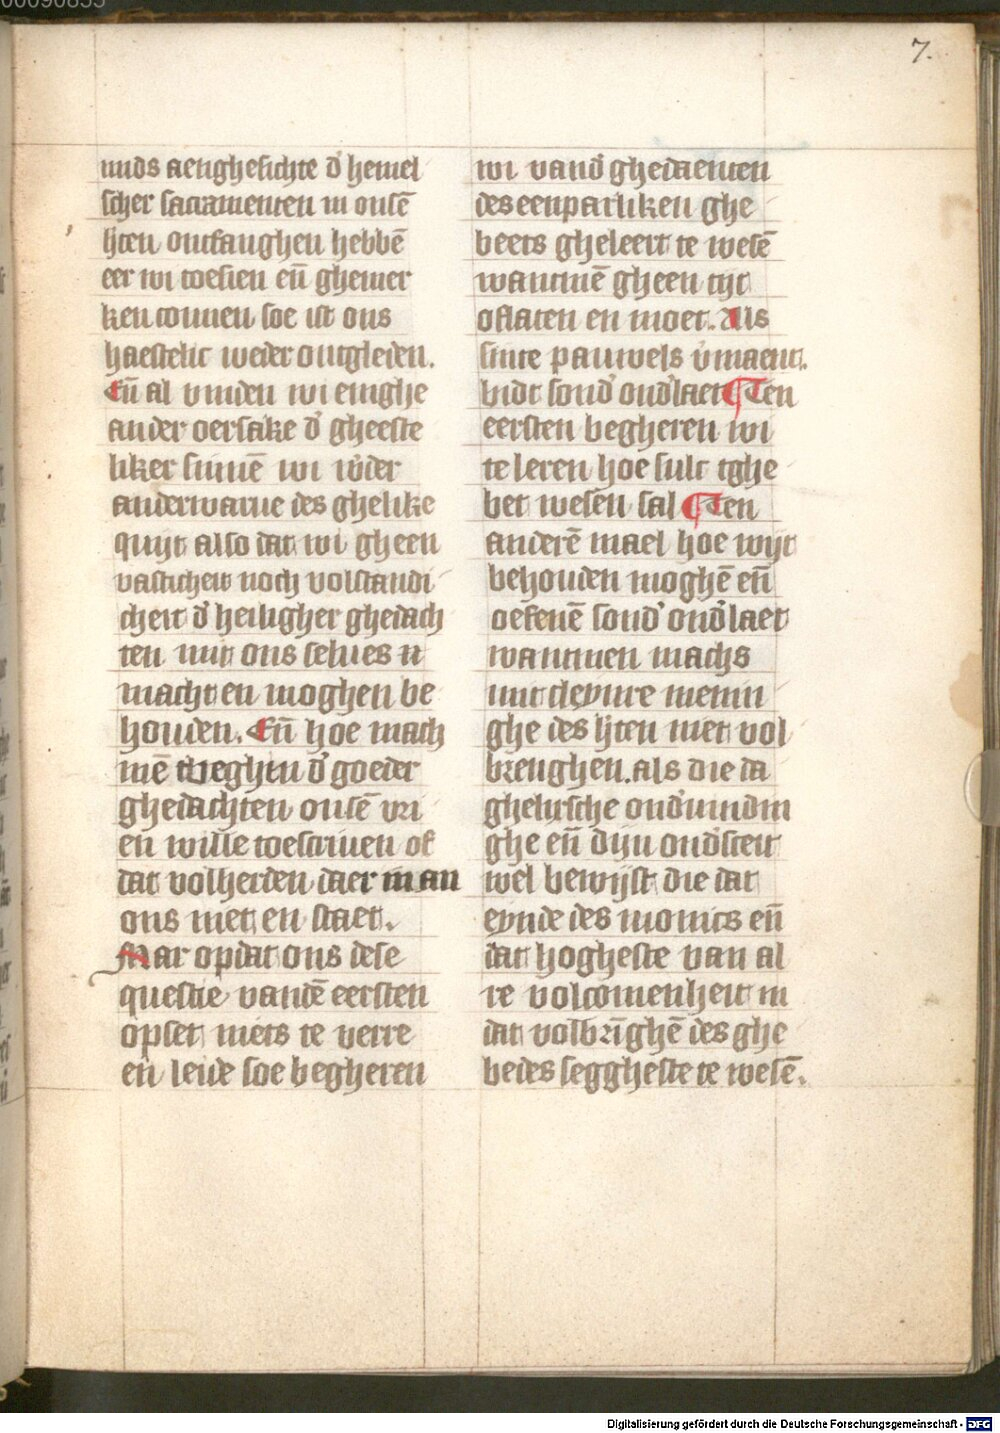 00090855
7.
nnds aenghesichte d' hemel
scher sacramenten in onsē
hten ontfanghen hebbē
eer wi toesien eñ ghemer
ken connen soe ist ons
haestelic weder ontgleden.
Eñ al vinden wi enighe
ander oersake d' gheeste
liker sinnē wi w'der
anderwarue des ghelike
quijt also dat wi gheen
vasticheit noch volstandi
cheit d' heiligher ghedach
ten mit ons selues
macht en moghen be
houden. Eñ hoe mach
mē tveghen d' goeder
ghedachten onsē vri
en wille toescriuen of
dat volherden daer in an
ons niet en staet.
Mar opdat ons dese
questie vandē eersten
opset niets te verre
en leide soe begheren
wi vand' ghedaenten
des eenparliken ghe
beets gheleert te wesē
wantmē gheen tijt
oflaten en moet. Als
sinte pauwels v'maent.
bidt sond' ond'laet ¶ Ten
eersten begheren wi
te leren hoe sulc tghe
bet wesen sal ¶ Ten
anderē mael hoe wijt
behouden moghē eñ
oefenē sond' ond'laet
wantmen machs
mit cleynre menin
ghe des hten niet vol
brenghen. als die da
ghelixsche ond'uindin
ghe eñ dijn ond'sceit
wel bewijst die dat
eynde des monics eñ
dat hogheste van al
re volcomenheit in
dat volbrīghē des ghe
bedes seggheste te wesē.
Digitalisierung gefördert durch die Deutsche Forschungsgemeinschaft - DFG